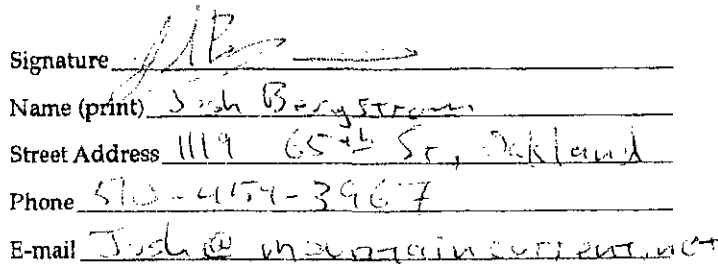 Signature
Name (print) Josh Bergstrom
Street Address 1119 65th St, Oakland
Phone 510-454-3967
E-mail Josh@mountaincurrent.net